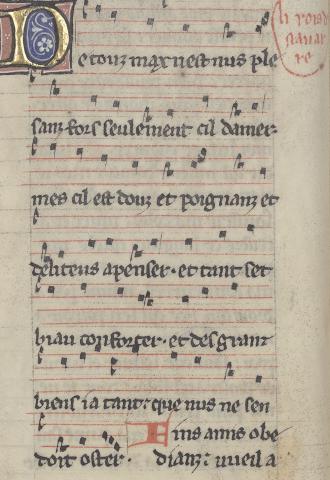 li rois de
navar
re
De touz max nest nus ple
sanz fors seulement cil damer·
mes cil est douz et poignanz et
deliteus a penser· et tant set
biau conforter· et des granz
biens i a tant: que nus ne sen
doit oster·
Fins amis obe
dianz: vueil a